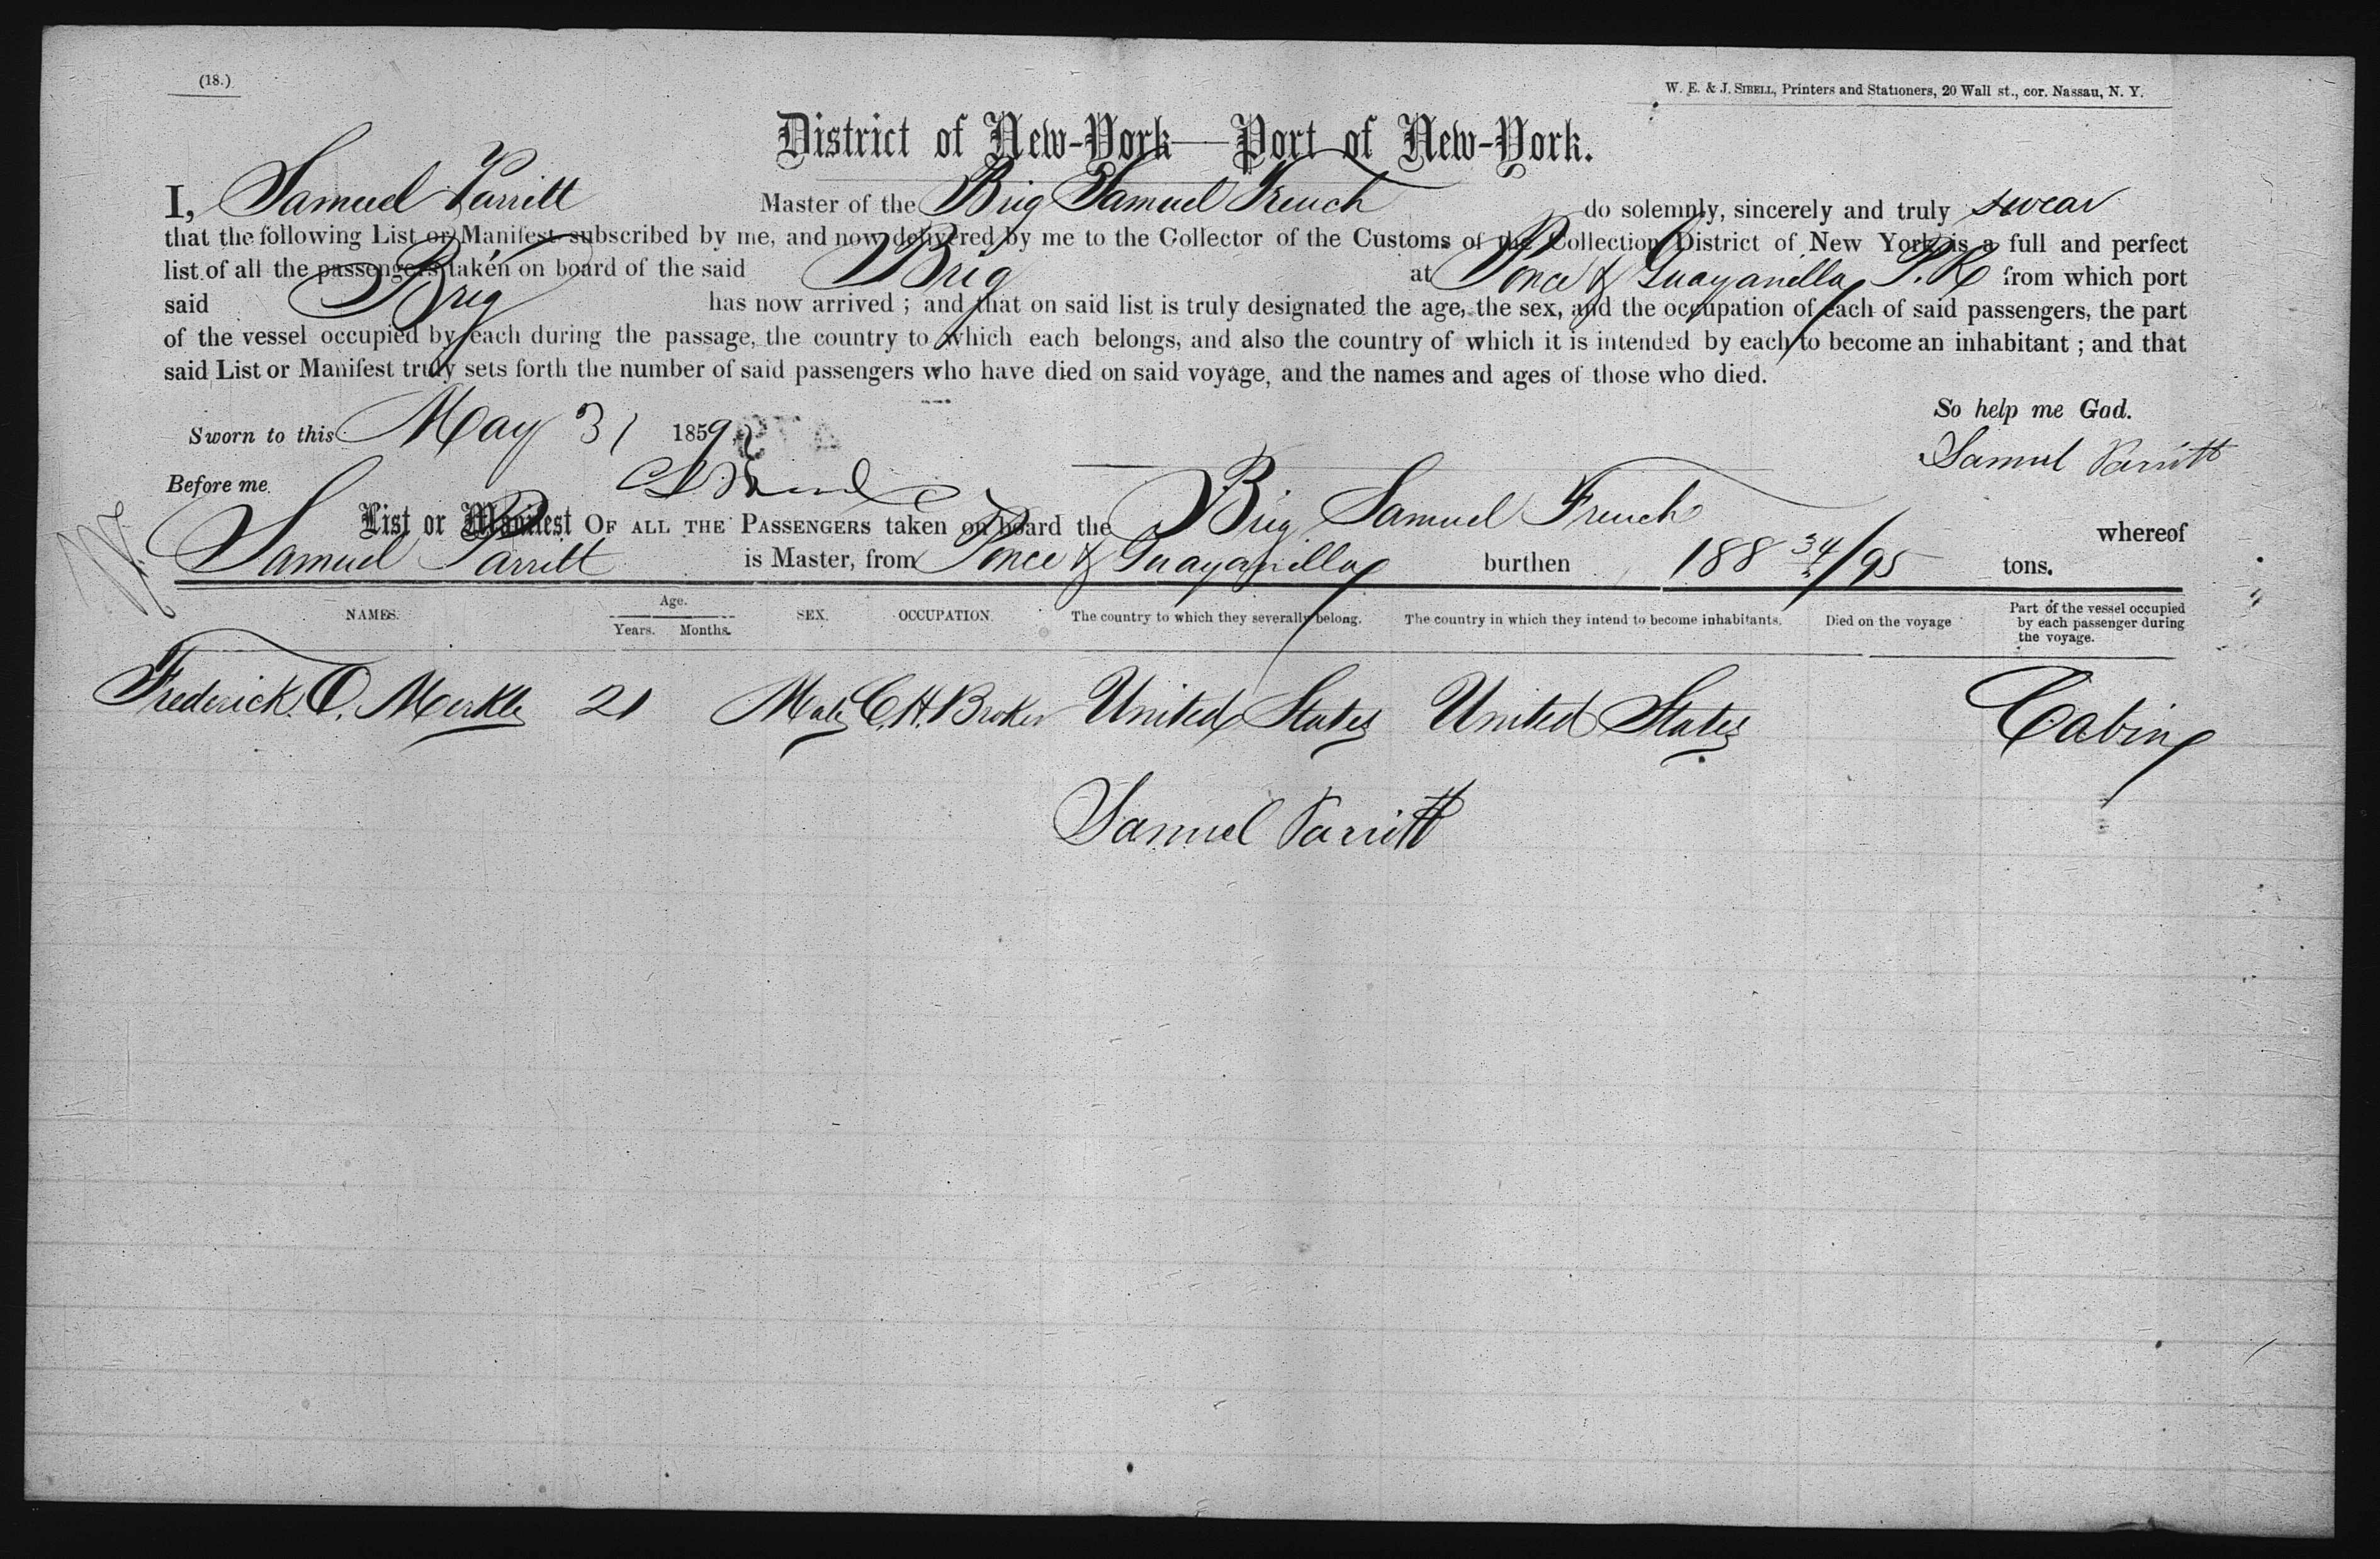 (18.)
W. E. & J. SIBELL, Printers and Stationers, 20 Wall st., cor. Nassau, N. Y.
District of New-York—Port of New-York.
I, Samuel Parritt Master of the Brig Samuel French do solemnly, sincerely and truly swear
that the following List or Manifest subscribed by me, and now delivered by me to the Collector of the Customs of the Collection District of New York is a full and perfect
list of all the passengers taken on board of the said Brig at Ponce & Guayanilla P.R from which port
said Brig has now arrived ; and that on said list is truly designated the age, the sex, and the occupation of each of said passengers, the part
of the vessel occupied by each during the passage, the country to which each belongs, and also the country of which it is intended by each to become an inhabitant ; and that
said List or Manifest truly sets forth the number of said passengers who have died on said voyage, and the names and ages of those who died.
So help me God.
Sworn to this May 31 1859,
Samuel Parritt
Before me
List or Manifest OF ALL THE PASSENGERS taken on board the Brig Samuel French whereof
Samuel Parritt is Master, from Ponce & Guayanilla burthen 188 34/95 tons.
NAMES. Age. Years. Months. SEX. OCCUPATION. The country to which they severally belong. The country in which they intend to become inhabitants. Died on the voyage Part of the vessel occupied by each passenger during the voyage.
Frederick O. Merkle 21 Male C.H. Broker United States United States Cabin
Samuel Parritt